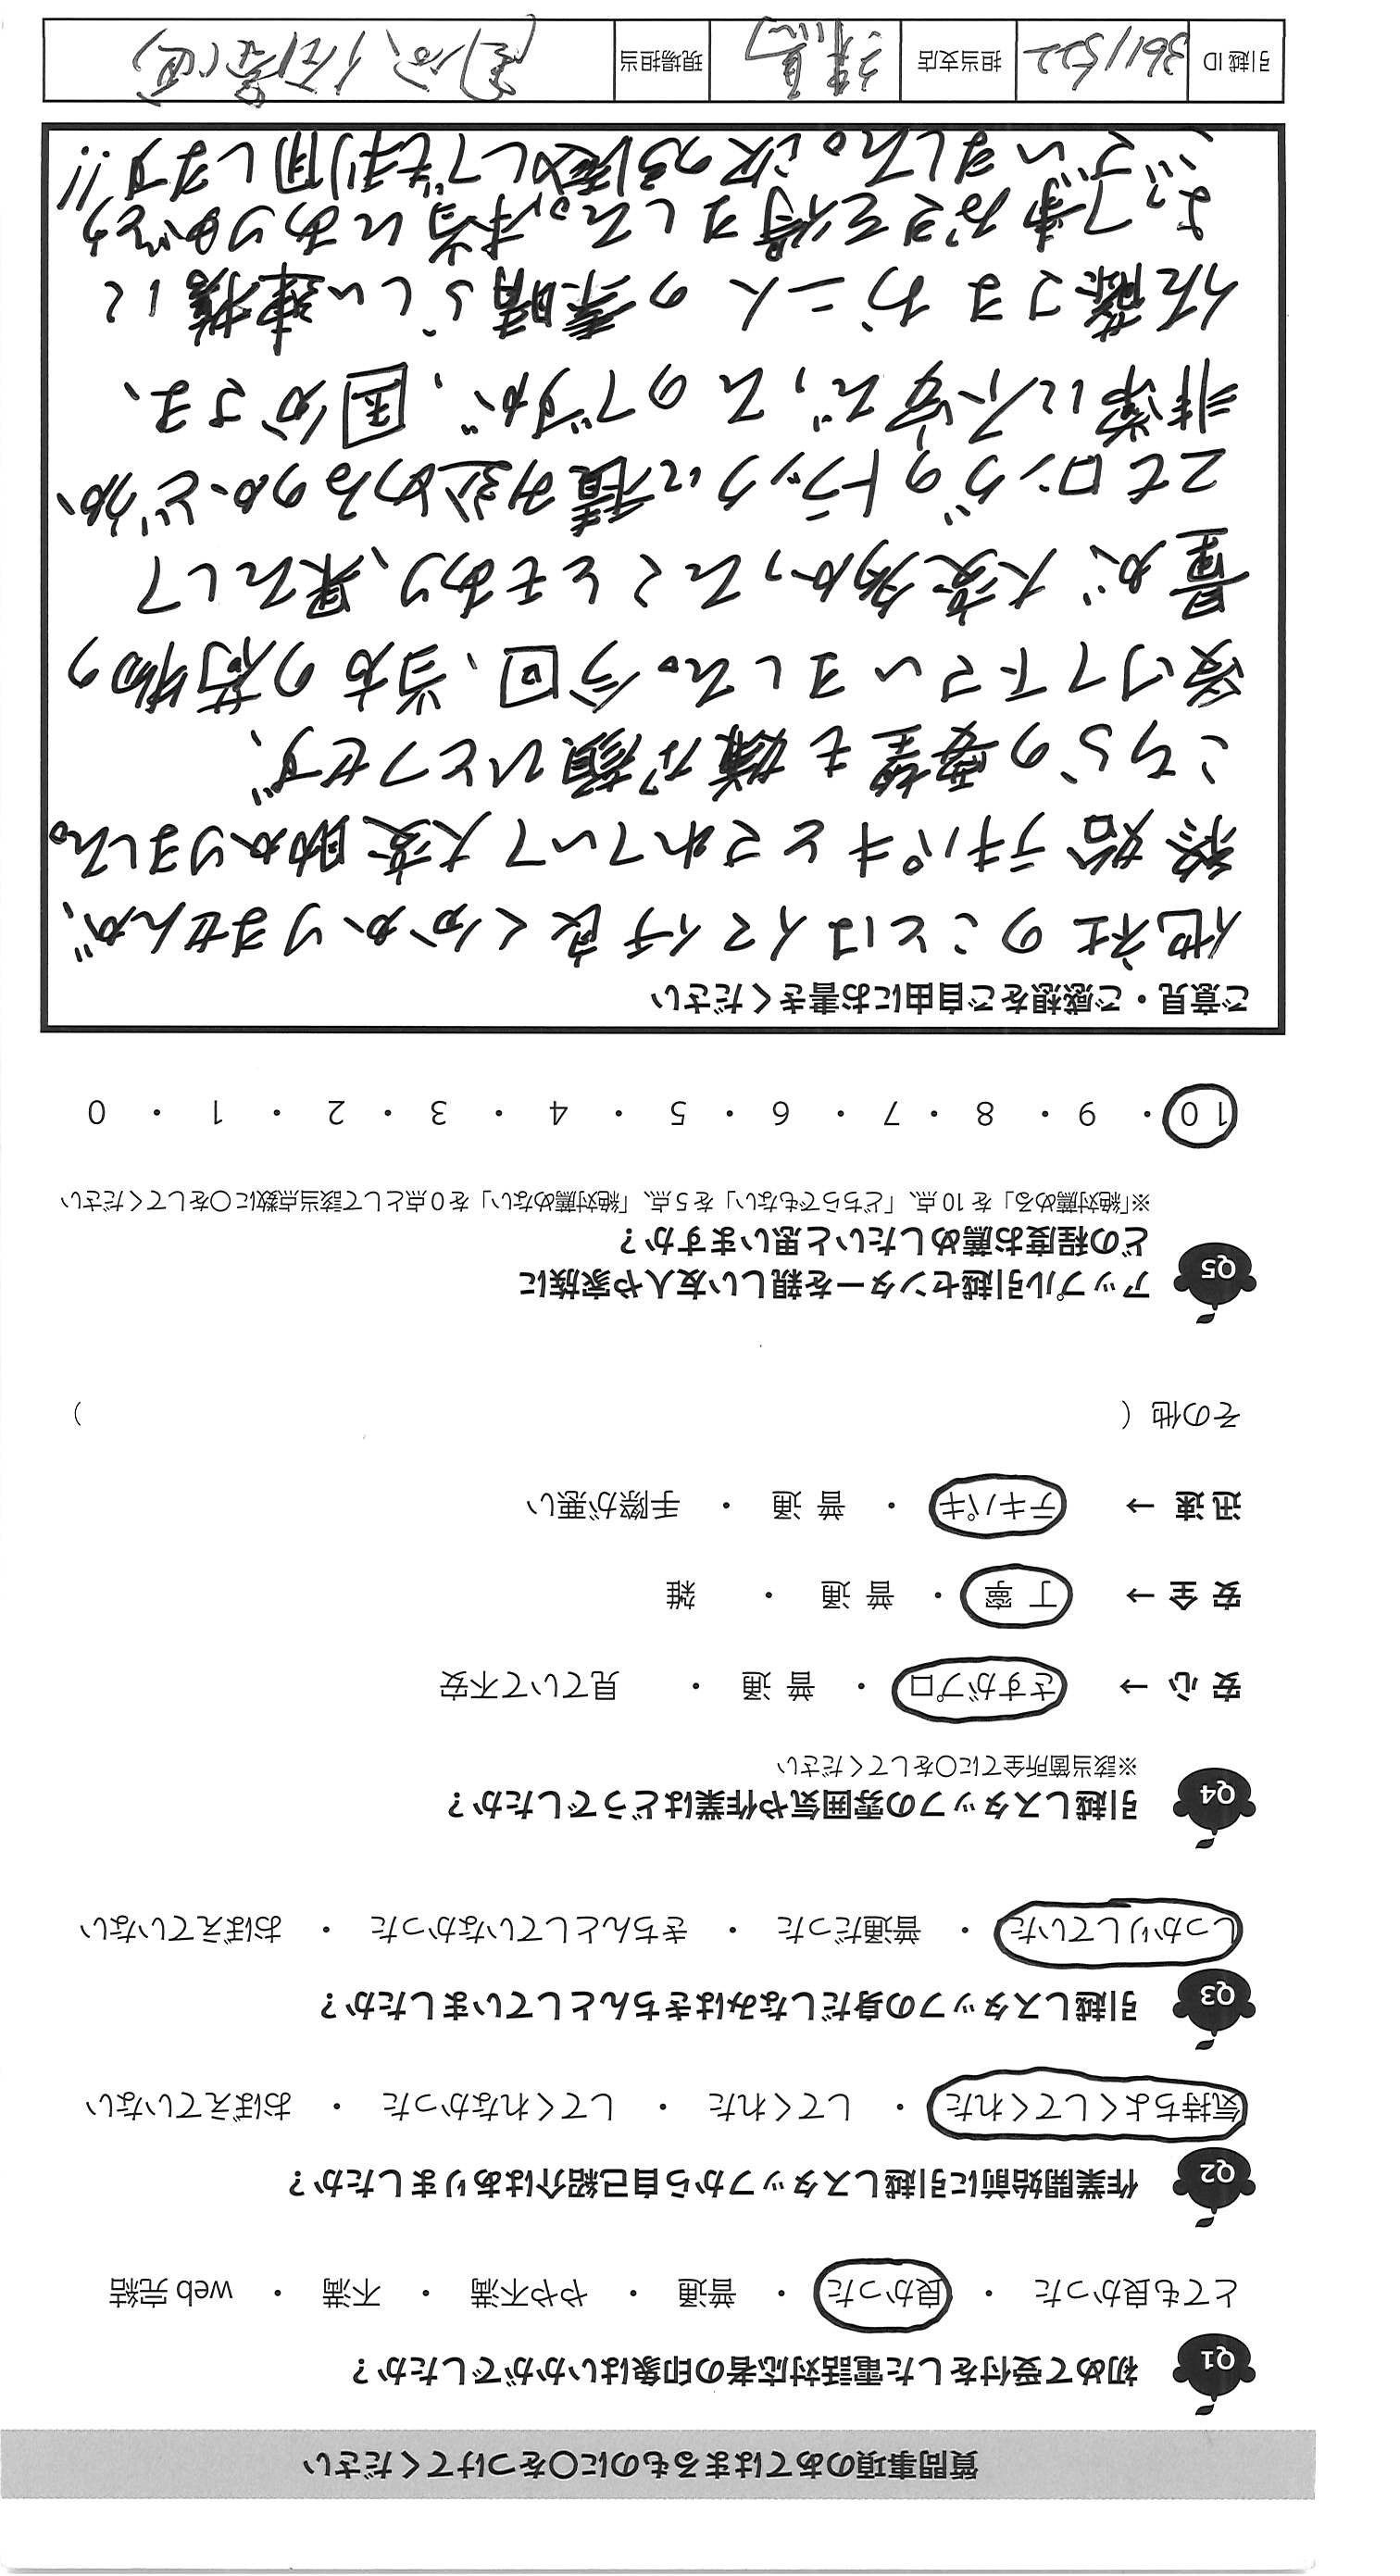 質問事項のあてはまるものに〇をつけてください
Q1 初めて受付をした電話対応者の印象はいかがでしたか？
とても良かった ・ 良かった ・ 普通 ・ やや不満 ・ 不満 ・ web 完結
Q2 作業開始前に引越しスタッフから自己紹介はありましたか？
気持ちよくしてくれた ・ してくれた ・ してくれなかった ・ おぼえていない
Q3 引越しスタッフの身だしなみはきちんとしていましたか？
しっかりしていた ・ 普通だった ・ きちんとしていなかった ・ おぼえていない
Q4 引越しスタッフの雰囲気や作業はどうでしたか？
※該当箇所全てに〇をしてください
安心→ さすがプロ ・ 普通 ・ 見ていて不安
安全→ 丁寧 ・ 普通 ・ 雑
迅速→ テキパキ ・ 普通 ・ 手際が悪い
その他（ ）
Q5 アップル引越センターを親しい友人や家族に
どの程度お薦めしたいと思いますか？
※「絶対薦める」を 10 点、「どちらでもない」を 5 点、「絶対薦めない」を 0 点として該当点数に〇をしてください
10 ・ 9 ・ 8 ・ 7 ・ 6 ・ 5 ・ 4 ・ 3 ・ 2 ・ 1 ・ 0
ご意見・ご感想をご自由にお書きください
他社のことはイマイチ良く分かりませんが、
終始テキパキとされていて大変助かりました。
こちらの要望も嫌な顔ひとつせず、
受けて下さいました。今回、当方の荷物の
量が大変多かったこともあり、果たして
2tロングのトラックに積み込めるのかどうか、
非常に不安だったのですが、国分さま、
佐藤さまお二人の素晴らしい連携に
よって事なきを得ました。本当にありがとう
ございました。次の引越しでも利用します!!
引越 ID 3611522 担当支店 現場担当 国分、佐藤(直)